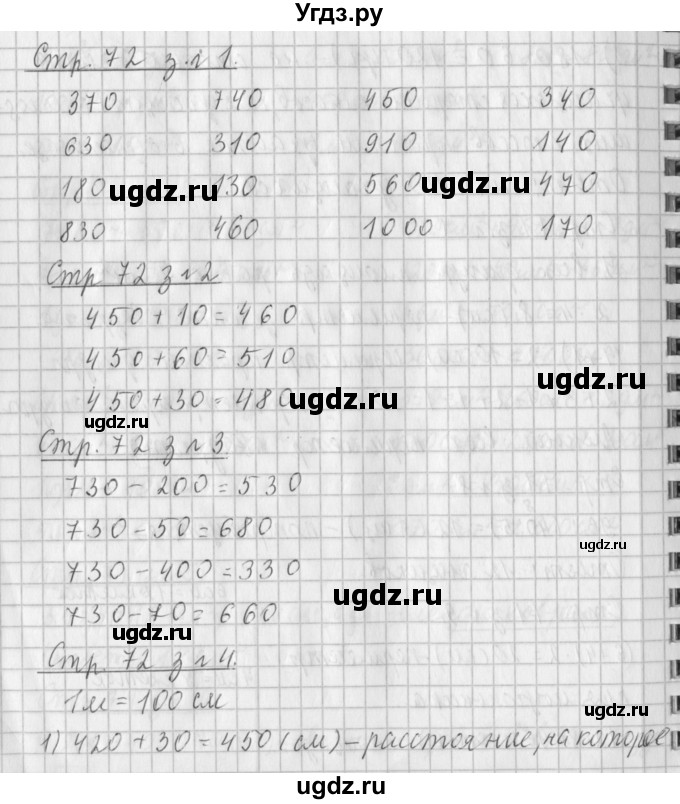 Угдз.ру
Стр. 72 з.№ 1.
370 740 450 340
630 310 910 140
180 130 560 470
ugdz.ru ugdz.ru
830 460 1000 170
Стр 72 з №2
450+10=460
450+60=510
ugdz.ru
450+30=480
ugdz.ru
ugdz.ru
Стр. 72 з №3
730-200=530
730-50=680
ugdz.ru
730-400=330
ugdz.ru
730-70=660
ugdz.ru
Стр. 72 з №4.
1м=100 см
ugdz.ru
1) 420+30=450(см)-расстояние, на которое
ugdz.ru